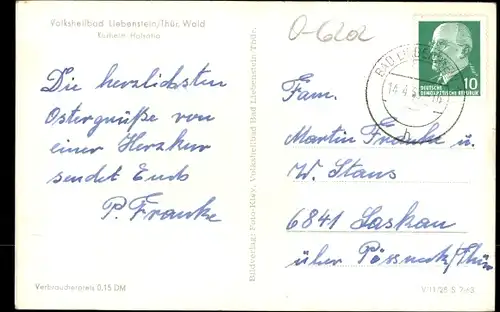 Volksheilbad Liebenstein/Thür. Wald
Kurheim Holsatia
O-6202
Die herzlichsten
Ostergrüße von
einer Herzkur
sendet Euch
P. Franke
Bildverlag: Foto-Kley, Volksheilbad Bad Liebenstein Thür.
BAD LIEBEN
14.4
h
DEUTSCHE
DEMOKRATISCHE REPUBLIK
10
Fam.
Martin Franke u.
W. Staus
6841 Laskau
über Pössneck/Thür
Verbraucherpreis 0,15 DM
V/11/28 S 7/63